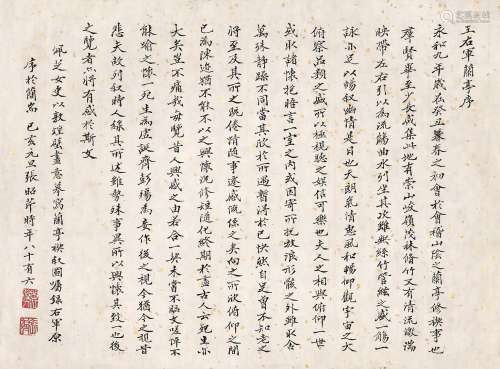 王右軍蘭亭序
永和九年歲在癸丑暮春之初會於會稽山陰之蘭亭修禊事也
群賢畢至少長咸集此地有崇山峻嶺茂林修竹又有清流激湍
映帶左右引以為流觴曲水列坐其次雖無絲竹管絃之盛一觴一
詠亦足以暢敘幽情是日也天朗氣清惠風和暢仰觀宇宙之大
俯察品類之盛所以極視聽之娛信可樂也夫人之相與俯仰一世
或取諸懷抱晤言一室之內或因寄所託放浪形骸之外雖取舍
萬殊靜躁不同當其欣於所遇暫得於己快然自足曾不知老之
將至及其所之既倦情隨事遷感慨係之矣向之所欣俯仰之間
已為陳迹猶不能不以之興懷況修短隨化終期於盡古人云死生亦
大矣豈不痛哉每覽昔人興感之由若合一契未嘗不臨文嗟悼不
能喻之懷一死生為虛誕齊彭殤為妄作後之視今猶今之視昔
悲夫故列敘時人錄其所述雖世殊事異所以興懷其致一也後
之覽者亦將有感於斯文
佩芝女史以敦煌壁畫意摹寫蘭亭禊敘圖囑錄右軍原
序於簡端 己亥元旦張昭芹時年八十有六